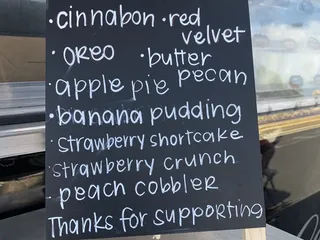 ·cinnabon ·red velvet
·OREO ·butter pecan
·apple pie
·banana pudding
·strawberry shortcake
·strawberry crunch
·peach cobbler
Thanks for supporting